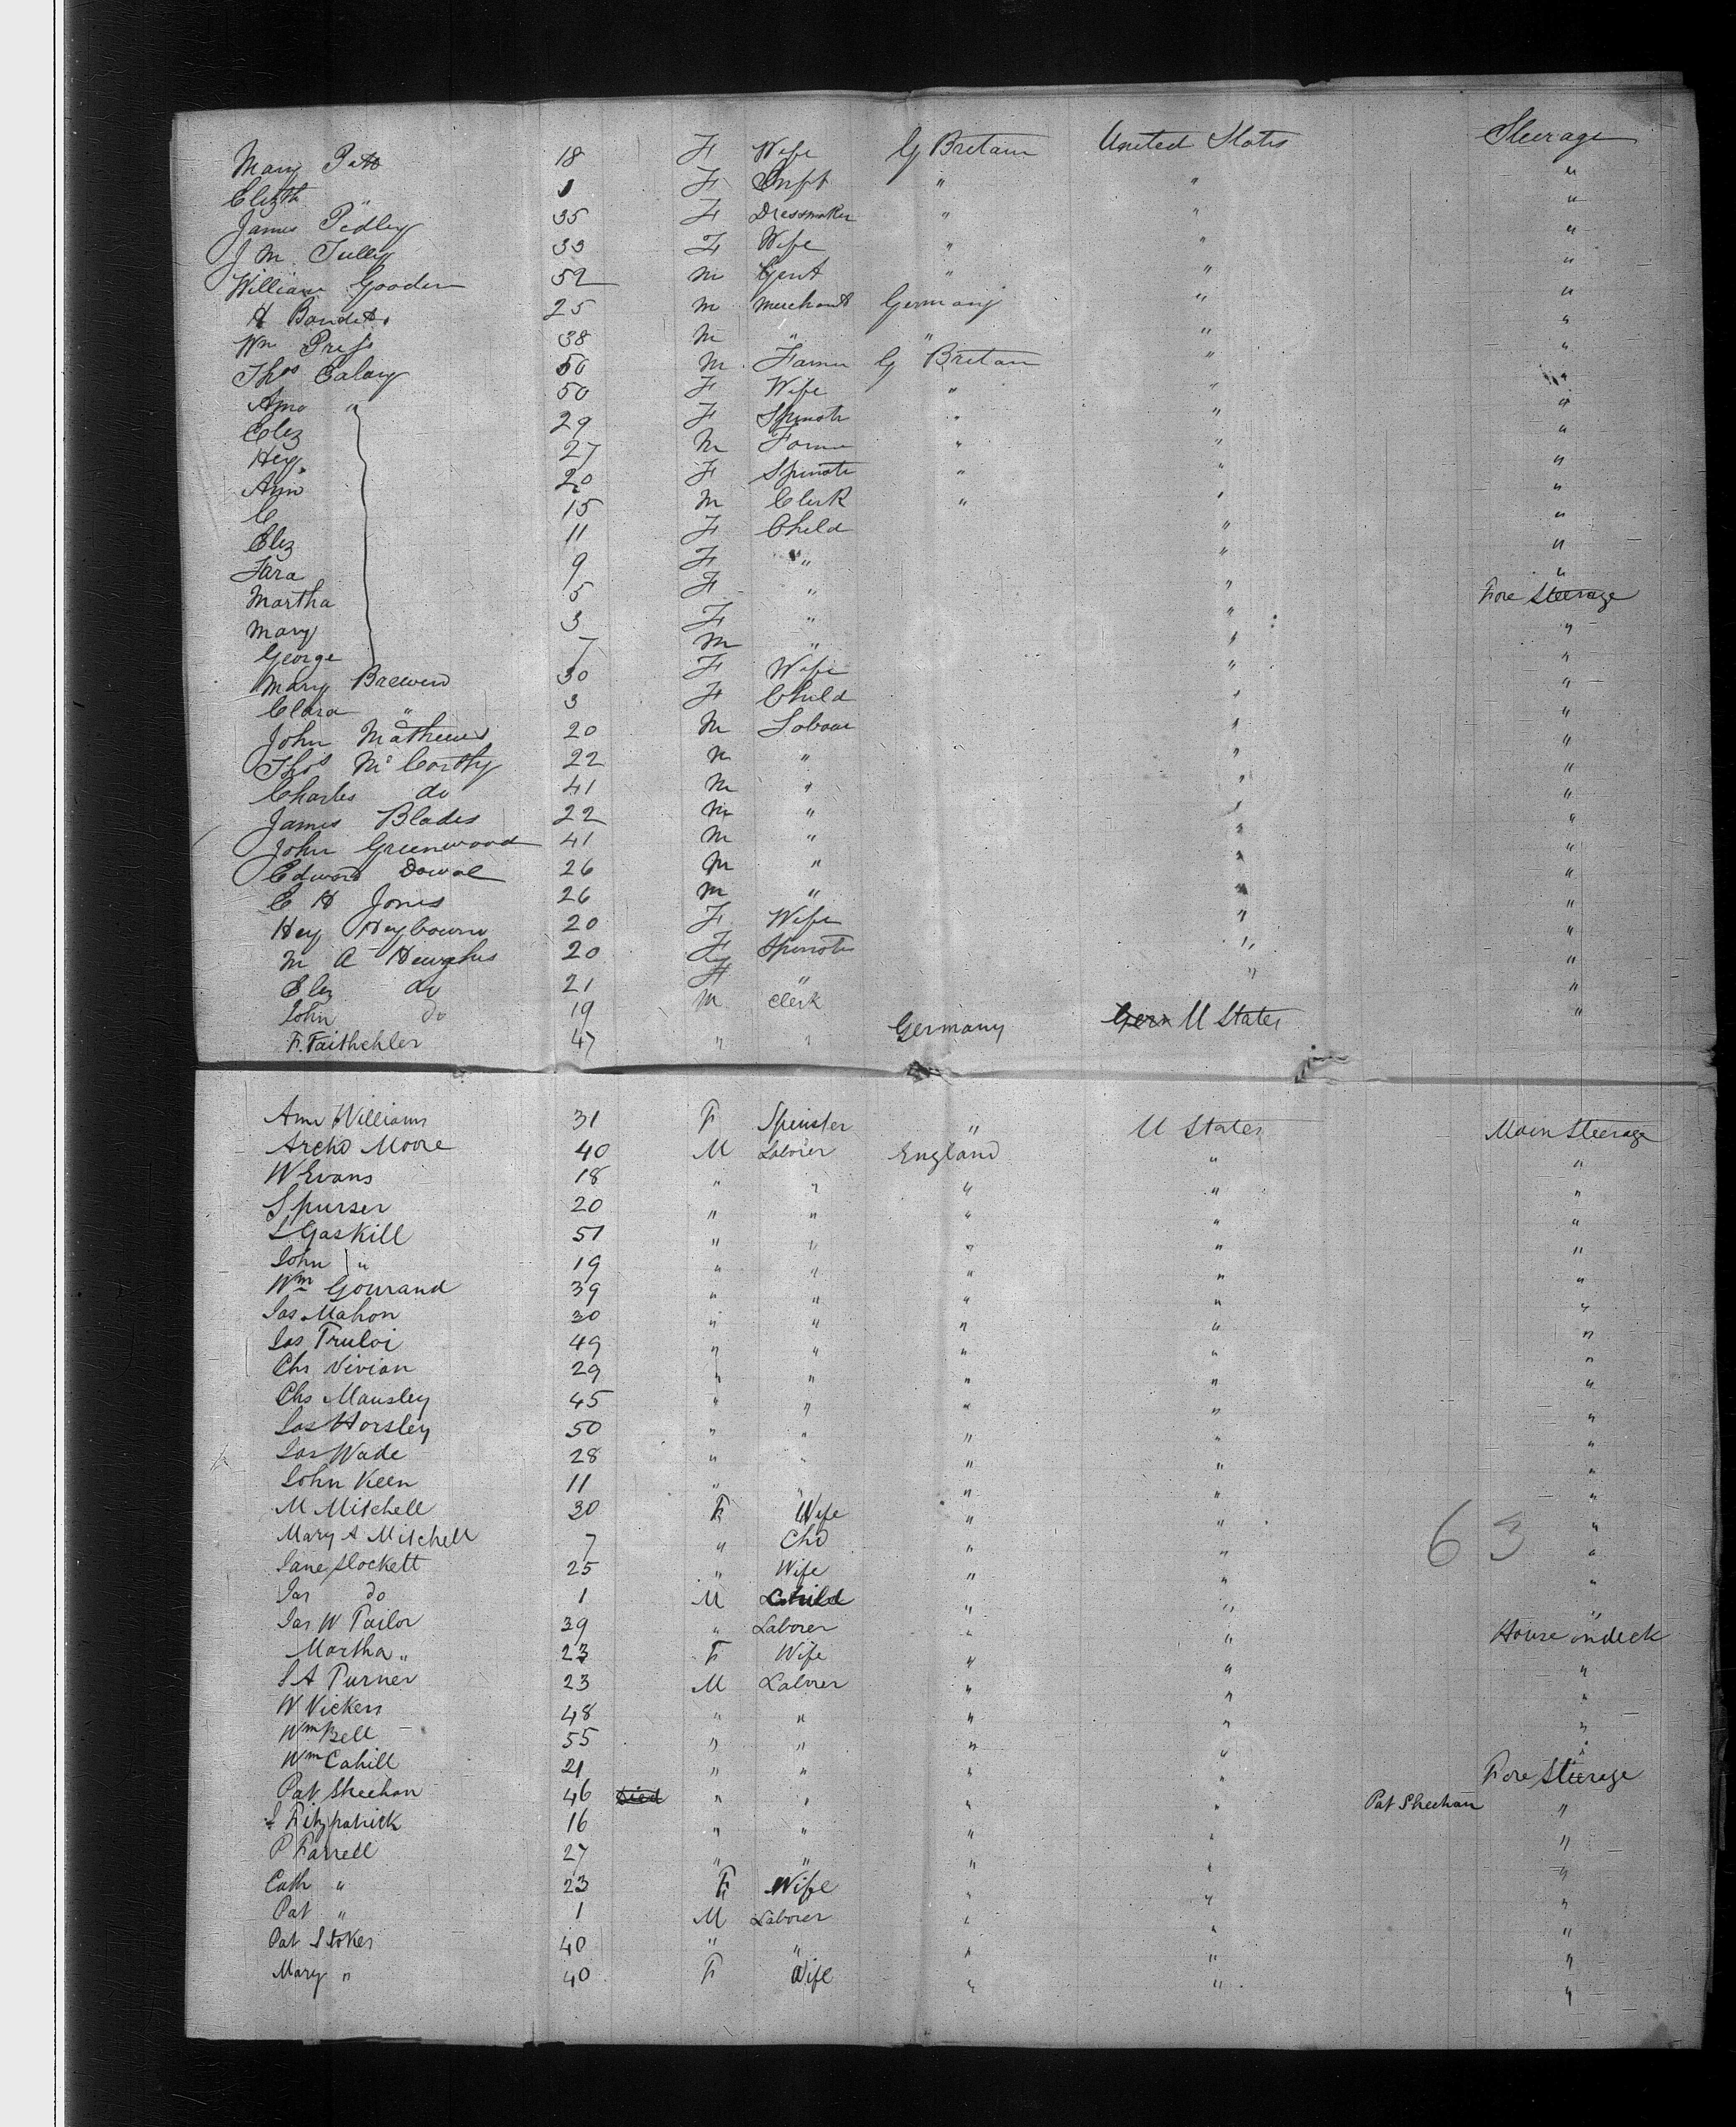 Mary Pitt 18 F Wife G Bretain United States Steerage
Elizth " 1 F Inft " " "
James Pedley 35 F Dressmaker " " "
J M Tully 33 F Wife " " "
William Gooden 52 m Gent " " "
H 25 m Merchant Germany " "
Wm Press 38 m " " " "
Thos 50 m Farmer G Bretain " "
Ann " 50 F Wife " " "
Eliz 29 F Spinstr " " "
Hey 27 m Farmer " " "
Ann 20 F Spinstr " " "
C 15 m Clerk " " "
Eliz 11 F Child " "
Sara 9 F " " "
Martha 5 F " " Fore Steerage
Mary 3 F " " "
George 7 m " " "
Mary Brewin 30 F Wife " "
Clara " 3 F Child " "
John Mathews 20 m Labour " "
Thos McCarthy 22 m " " "
Charles do 41 m " " "
James Blades 22 m " " "
John Greenwood 41 m " " "
Edward Dowal 26 m " " "
C H Jones 26 m " " "
Hey Heybourn 20 F Wife " "
M A Hewghes 20 F Spinstr " "
Eliz do 21 F " " "
John do 19 m Clerk "
F. Faithchler 47 " " Germany Gern U States
Ann Williams 31 F Spinster " U States Main Steerage
Archd Moore 40 M Laborer England " "
W Evans 18 " " " " "
S purser 20 " " " " "
S Gaskill 51 " " " " "
John " 19 " " " " "
Wm Gourand 39 " " " " "
Jas Mahon 30 " " " " "
Jas Truloi 49 " " " " "
Chs Vivian 29 " " " " "
Chs Mausley 45 " " " " "
Jas Horsley 50 " " " " "
Jas Wade 28 " " " " "
John Keen 11 " " " " "
M Mitchell 30 F Wife " " "
Mary A Mitchell 7 " Chd " " " 63
Jane Slockett 25 " Wife " " "
Jas do 1 M Child " " "
Jas W Tailor 39 " Laborer " " House on deck
Martha " 23 F Wife " " "
S A Turner 23 M Laborer " " "
W Vickers 48 " " " " "
Wm Bell 55 " " " " "
Wm Cahill 21 " " " " Fore Steerage
Pat Sheehan 46 Died " " " " Pat Sheehan "
J Fitzpatrick 16 " " " " "
P Farrell 27 " " " " "
Cath " 23 F Wife " " "
Pat " 1 M Laborer " " "
Pat Stokes 40 " " " " "
Mary " 40 F Wife " " "